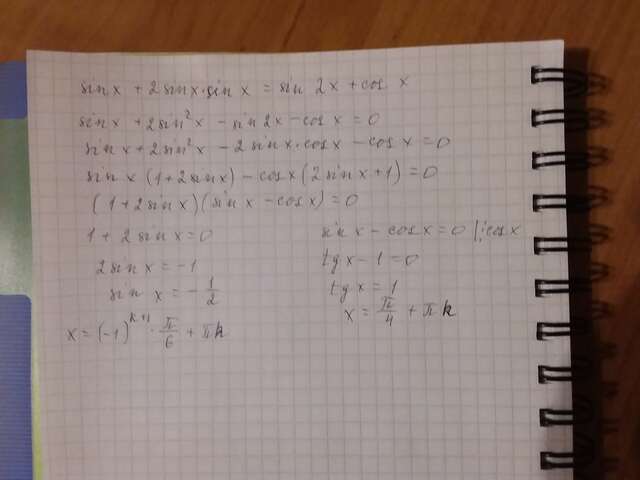 sin x + 2 sin x · sin x = sin 2x + cos x
sin x + 2 sin² x - sin 2x - cos x = 0
sin x + 2 sin² x - 2 sin x · cos x - cos x = 0
sin x (1 + 2 sin x) - cos x (2 sin x + 1) = 0
(1 + 2 sin x)(sin x - cos x) = 0
1 + 2 sin x = 0
2 sin x = -1
sin x = -1/2
x = (-1)^(k+1) · π/6 + πk
sin x - cos x = 0 | : cos x
tg x - 1 = 0
tg x = 1
x = π/4 + πk